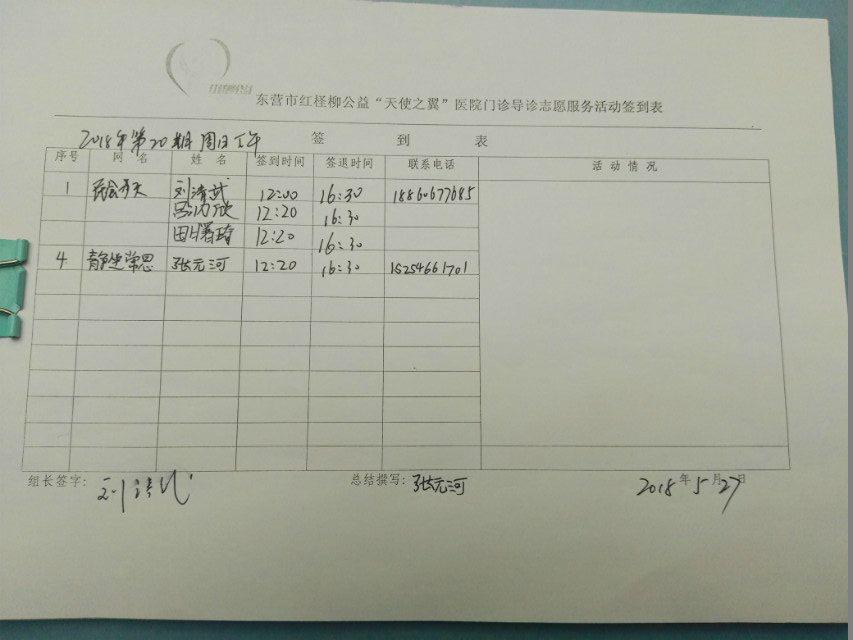 东营市红柽柳公益“天使之翼”医院门诊导诊志愿服务活动签到表
2018年第20期周日下午 签 到 表
序号 网 名 姓 名 签到时间 签退时间 联系电话 活 动 情 况
1 刘清武 12:00 16:30 18860677685
12:20 16:30
田曙琦 12:20 16:30
4 静坐常思 张元河 12:20 16:30 15254661701
组长签字: 刘清武 总结撰写: 张元河 2018年5月27日